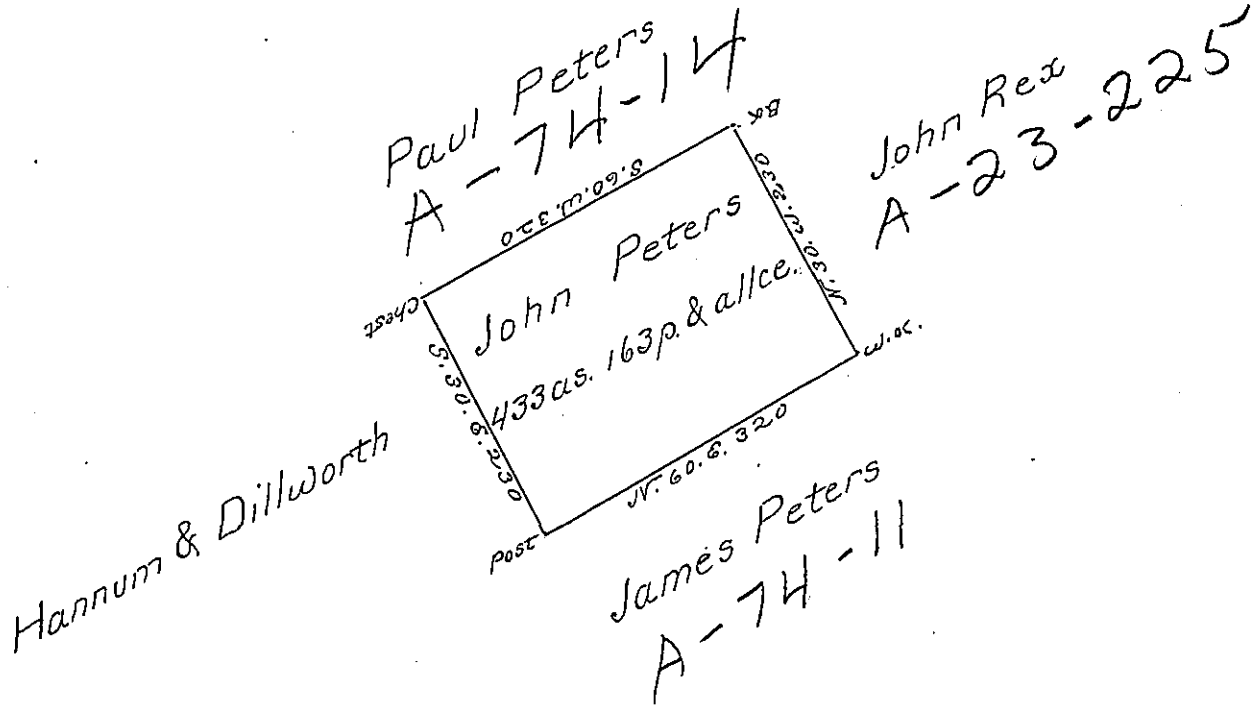 Paul Peters
A-74-14
John Rex
A-23-225
Bk
S.60.W.320
N.30.W.230
Chest
John Peters
433as. 163p. & allce.
W.oK.
S.30.E.230
N.60.E.320
Post
Hannum & Dillworth
James Peters
A-74-11